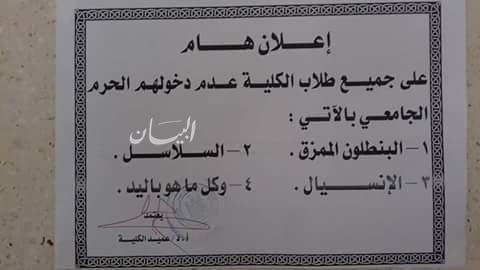 إعلان هام
على جميع طلاب الكلية عدم دخولهم الحرم
الجامعي بالآتي :
البيان
١- البنطلون الممزق . ٢- السلاسل .
٣- الإنسيال . ٤- وكل ما هو باليد .
يعتمد
أ.د/ عميد الكلية